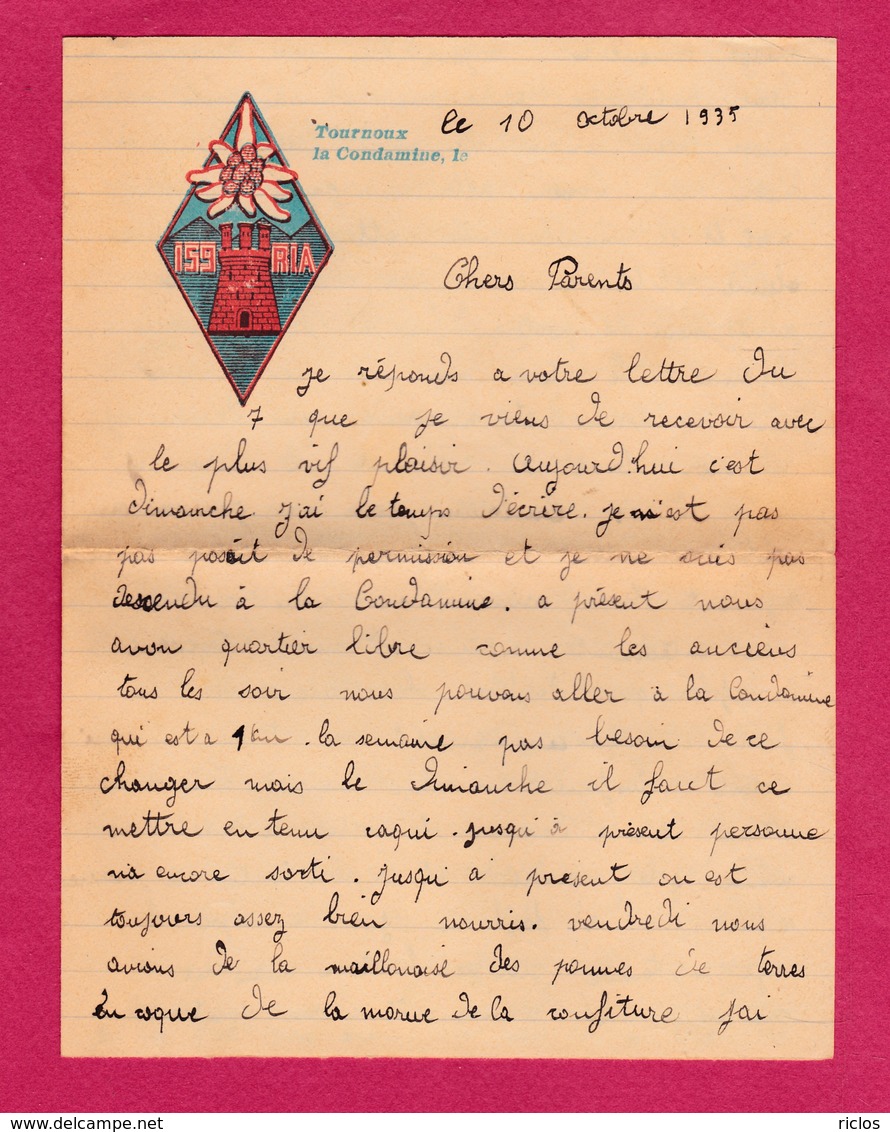 Tournoux
la Condamine, le
le 10 octobre 1935
159 RIA
Chers Parents
je réponds a votre lettre du
7 que je viens de recevoir avec
le plus vif plaisir. Aujourd'hui c'est
dimanche j'ai le temps d'écrire. je n'est pas
pas de permission et je ne suis pas
descendu à la Condamine. a présent nous
avon quartier libre comme les anciens
tous les soir nous pouvons aller à la Condamine
qui est a 1 km. la semaine pas besoin de ce
changer mais le Dimanche il faut ce
mettre en tenu caqui. jusqu'à présent personne
n'a encore sorti. jusqu'i a present on est
toujours assez bien nourris. vendredi nous
avions de la maillonaise des pommes de terres
en coque de la morue de la confiture j'ai
riclos
delcampe.net